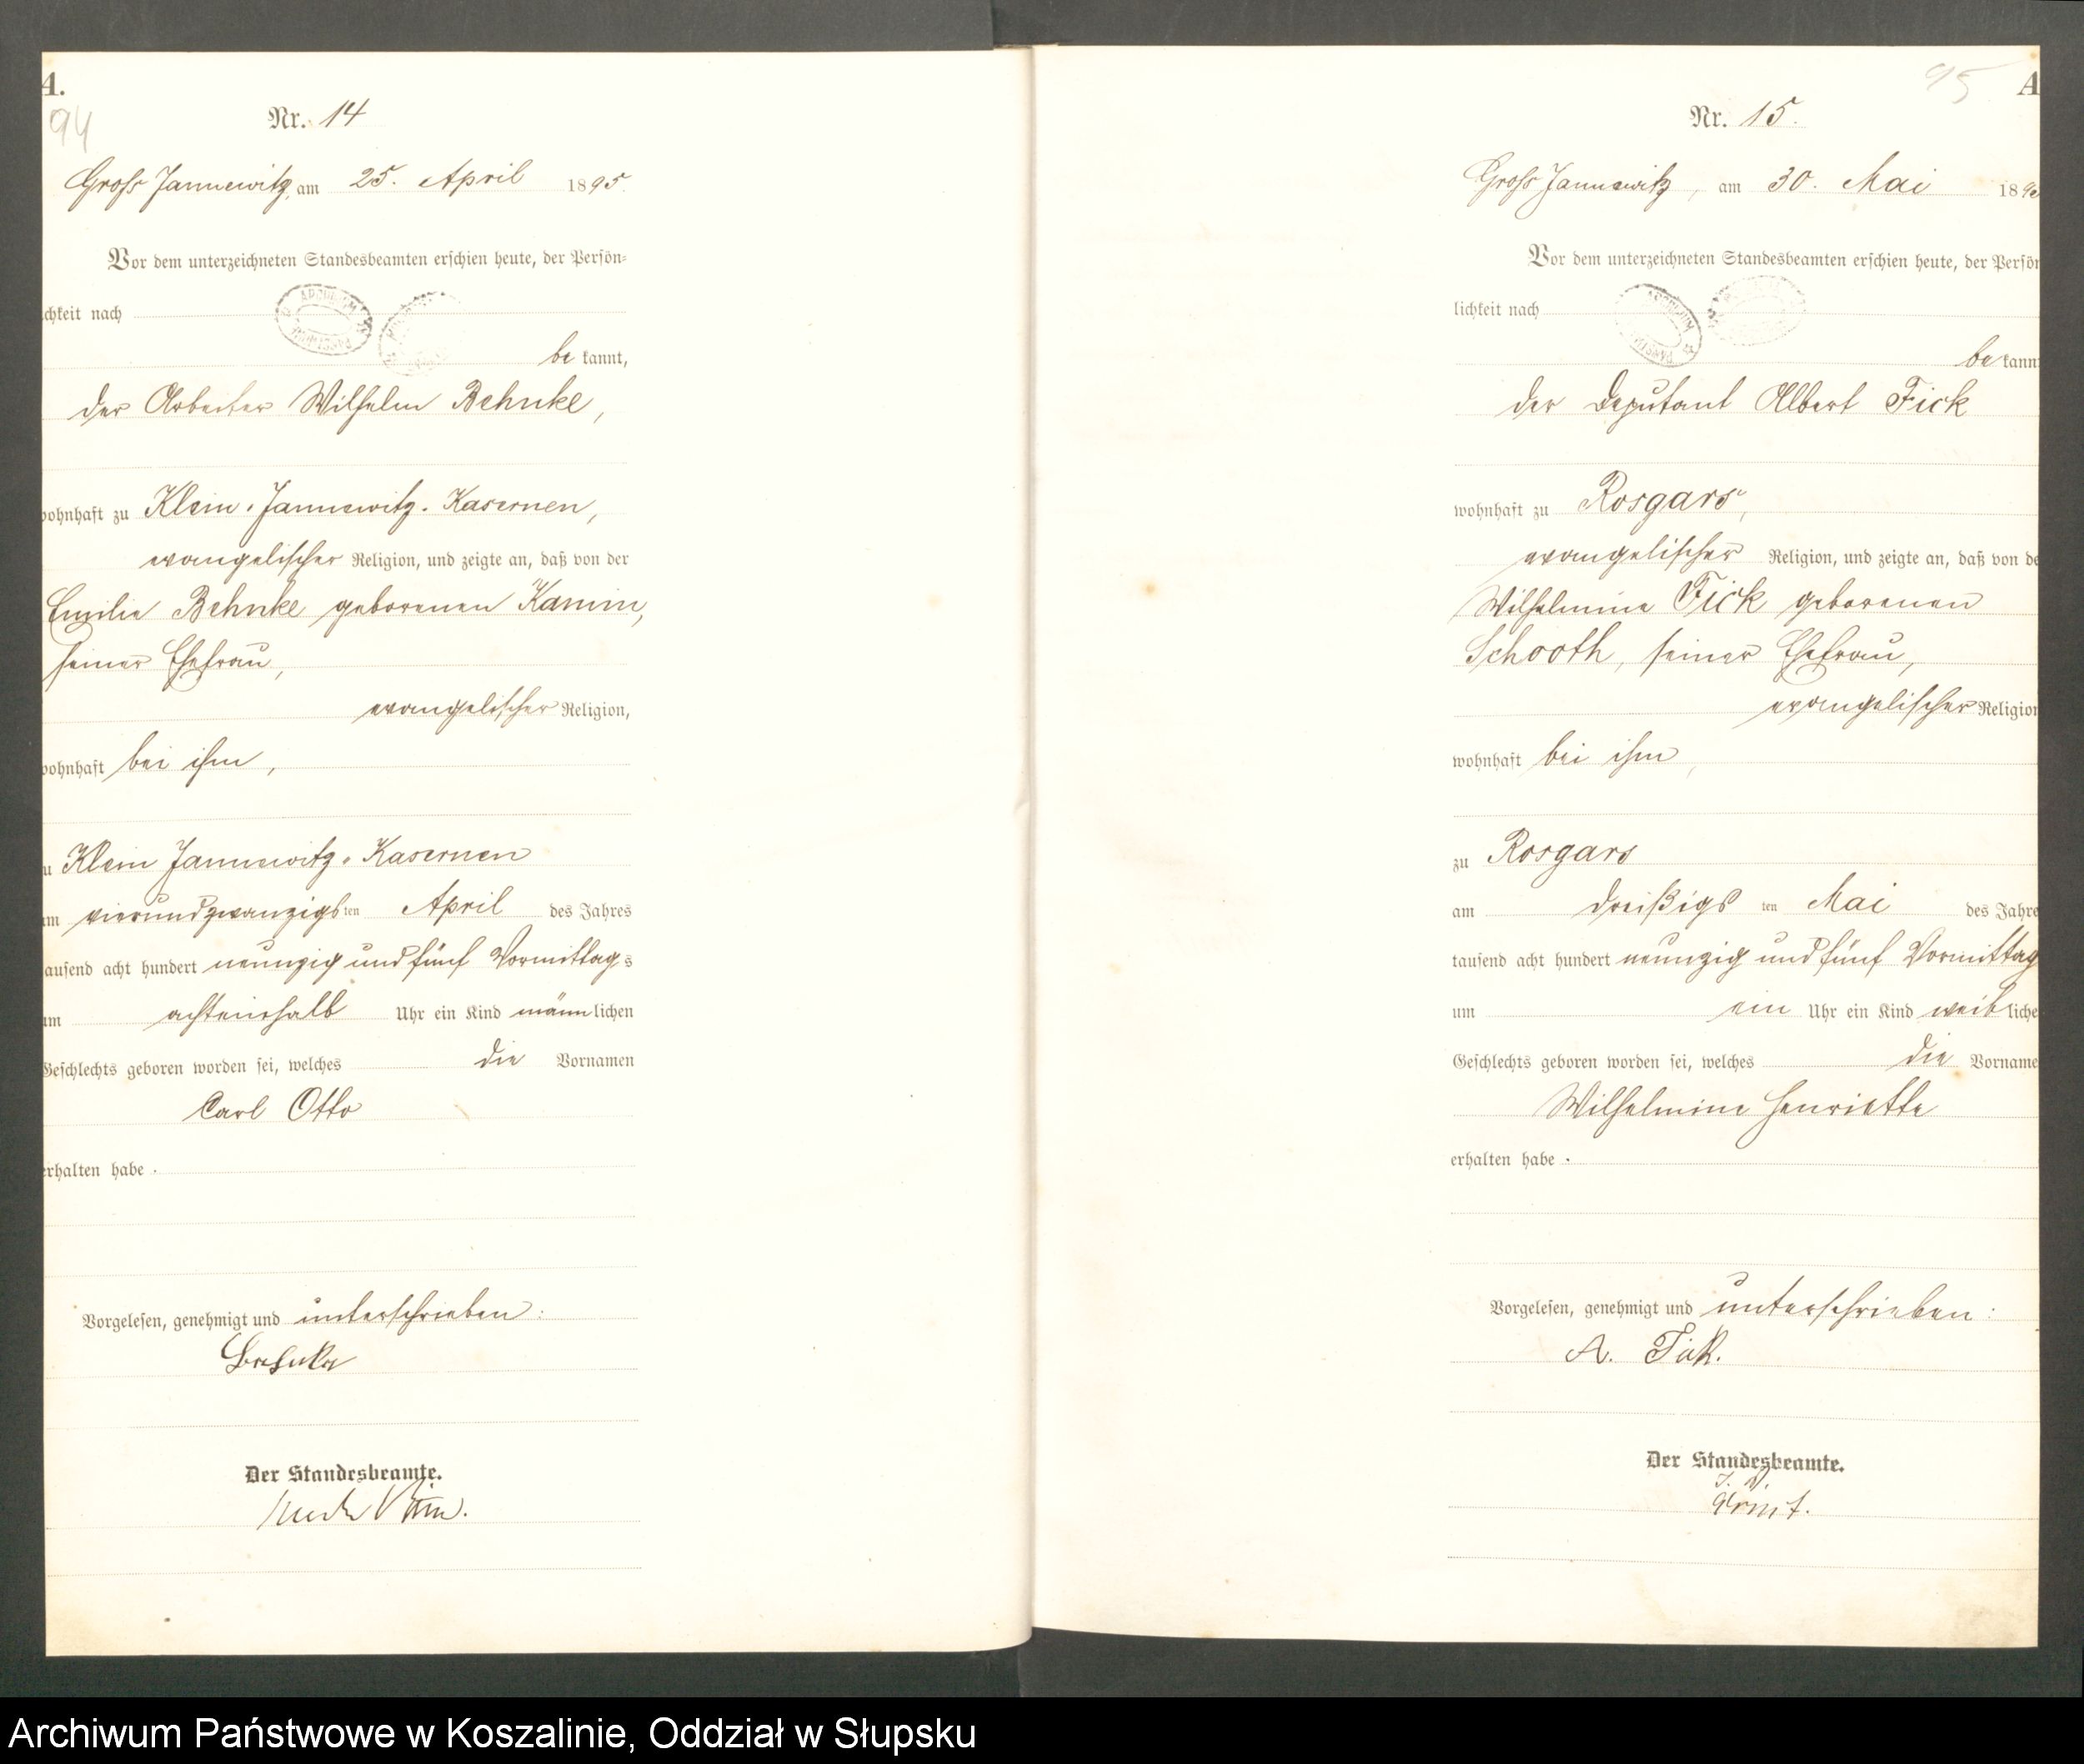 A.
94
Nr. 14
Gross Jannewitz, am 25. April 1895.
Vor dem unterzeichneten Standesbeamten erschien heute, der Persön-
chkeit nach
be kannt,
der Arbeiter Wilhelm Behnke,
wohnhaft zu Klein-Jannewitz-Kasernen,
evangelischer Religion, und zeigte an, daß von der
Emilie Behnke geborenen Kamin,
seiner Ehefrau,
evangelischer Religion,
wohnhaft bei ihm,
u Klein Jannewitz-Kasernen
am vierundzwanzigsten April des Jahres
tausend acht hundert neunzig und fünf Vormittags
um achteinhalb Uhr ein Kind männlichen
Geschlechts geboren worden sei, welches die Vornamen
Carl Otto
erhalten habe.
Vorgelesen, genehmigt und unterschrieben:
Behnke
Der Standesbeamte.
95
A
Nr. 15.
Gross Jannewitz, am 30. Mai 189
Vor dem unterzeichneten Standesbeamten erschien heute, der Persön
lichkeit nach
be kann
der Deputant Albert Fick
wohnhaft zu Rosgars,
evangelischer Religion, und zeigte an, daß von de
Wilhelmine Fick geborenen
Schooth, seiner Ehefrau,
evangelischer Religion
wohnhaft bei ihm,
zu Rosgars
am dreißigsten Mai des Jahre
tausend acht hundert neunzig und fünf Vormittag
um ein Uhr ein Kind weibliche
Geschlechts geboren worden sei, welches die Vorname
Wilhelmine Henriette
erhalten habe.
Vorgelesen, genehmigt und unterschrieben:
A. Fick.
Der Standesbeamte.
J. V.
Archiwum Państwowe w Koszalinie, Oddział w Słupsku